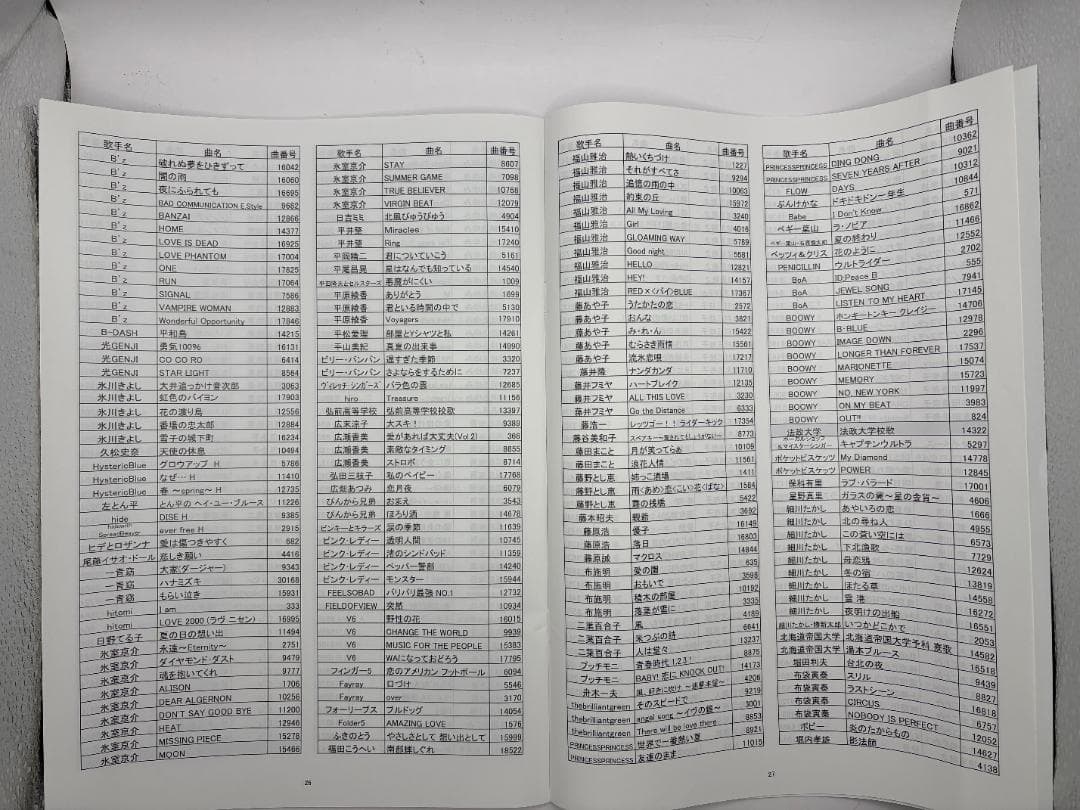 歌手名 曲名 曲番号
B'z 破れぬ夢をひきずって 16042
B'z 闇の雨 16060
B'z 夜にふられても 16695
B'z BAD COMMUNICATION E.Style 9682
B'z BANZAI 12866
B'z HOME 14377
B'z LOVE IS DEAD 16925
B'z LOVE PHANTOM 17004
B'z ONE 17825
B'z RUN 17064
B'z SIGNAL 7586
B'z VAMPIRE WOMAN 12883
B'z Wonderful Opportunity 17846
B-DASH 平和島 14215
光GENJI 勇気100% 16131
光GENJI CO CO RO 6414
光GENJI STAR LIGHT 8564
氷川きよし 大井追っかけ音次郎 3063
氷川きよし 虹色のバイヨン 17903
氷川きよし 花の渡り鳥 12556
氷川きよし 番場の忠太郎 12884
氷川きよし 雪子の城下町 16234
久松史奈 天使の休息 10494
HystericBlue グロウアップ H 5786
HystericBlue なぜ… H 11410
HystericBlue 春 ～spring～ H 12735
左とん平 とん平の ヘイ・ユー・ブルース 11226
hide DISE H 9385
hide with Spread Beaver ever free H 2915
ヒデとロザンナ 愛は傷つきやすく 682
尾藤イサオ・ドール 悲しき願い 4416
一青窈 大家(ダージャー) 9343
一青窈 ハナミズキ 30168
一青窈 もらい泣き 15931
hitomi I am 333
hitomi LOVE 2000 (ラヴ ニセン) 16995
日野てる子 夏の日の想い出 11494
氷室京介 永遠～Eternity～ 2751
氷室京介 ダイヤモンド・ダスト 9479
氷室京介 魂を抱いてくれ 9777
氷室京介 ALISON 1706
氷室京介 DEAR ALGERNON 10256
氷室京介 DON'T SAY GOOD BYE 11200
氷室京介 HEAT 12946
氷室京介 MISSING PIECE 15278
氷室京介 MOON 15466
歌手名 曲名 曲番号
氷室京介 STAY 8607
氷室京介 SUMMER GAME 7098
氷室京介 TRUE BELIEVER 10768
氷室京介 VIRGIN BEAT 12079
日吉ミミ 北風ぴゅうぴゅう 4904
平井堅 Miracles 15410
平井堅 Ring 17240
平岡精二 君についていこう 5161
平尾昌晃 星はなんでも知っている 14540
平田隆夫とセルスターズ 悪魔がにくい 1009
平原綾香 ありがとう 1699
平原綾香 君といる時間の中で 5130
平原綾香 Voyagers 17910
平松愛理 部屋とYシャツと私 14261
平山美紀 真夏の出来事 14990
ビリー・バンバン 遅すぎた季節 3320
ビリー・バンバン さよならをするために 7237
ヴィレッヂ シンガーズ バラ色の雲 12685
hiro Treasure 11156
弘前高等学校 弘前高等学校校歌 13397
広末涼子 大スキ! 9389
広瀬香美 愛があれば大丈夫(Vol 2) 366
広瀬香美 素敵なタイミング 8655
広瀬香美 ストロボ 8714
弘田三枝子 私のベイビー 17768
広畑あつみ 恋月夜 6079
ぴんから兄弟 おまえ 3543
ぴんから兄弟 ほろり酒 14678
ピンキーとキラーズ 涙の季節 11639
ピンク・レディー 透明人間 10745
ピンク・レディー 渚のシンドバッド 11359
ピンク・レディー ペッパー警部 14240
ピンク・レディー モンスター 15944
FEELSOBAD バリバリ最強 NO.1 12732
FIELDOFVIEW 突然 10934
V6 野性の花 16015
V6 CHANGE THE WORLD 9939
V6 MUSIC FOR THE PEOPLE 15383
V6 WAになっておどろう 17795
フィンガー5 恋のアメリカン フットボール 6094
Fayray 口づけ 5546
Fayray over 3170
フォーリーブス ブルドッグ 14054
Folder5 AMAZING LOVE 1576
ふきのとう やさしさとして 想い出として 15999
福田こうへい 南部蝉しぐれ 18522
26
歌手名 曲名 曲番号
福山雅治 熱いくちづけ 1227
福山雅治 それがすべてさ 9294
福山雅治 追憶の雨の中 10063
福山雅治 約束の丘 15972
福山雅治 All My Loving 3240
福山雅治 Girl 4016
福山雅治 GLOAMING WAY 5789
福山雅治 Good night 5681
福山雅治 HELLO 12821
福山雅治 HEY! 14157
福山雅治 RED×(バイ)BLUE 17367
藤あや子 うたかたの恋 2572
藤あや子 おんな 3821
藤あや子 み・れ・ん 15422
藤あや子 むらさき雨情 15561
藤あや子 流氷恋唄 17217
藤井隆 ナンダカンダ 11710
藤井フミヤ ハートブレイク 12135
藤井フミヤ ALL THIS LOVE 3230
藤井フミヤ Go the Distance 6333
藤浩一 レッツゴー!!ライダーキック 17354
藤谷美和子 スペアキー 8773
藤田まこと 月が笑ってらぁ 10109
藤田まこと 浪花人情 11561
藤野とし恵 姉っこ酒場 1411
藤野とし恵 雨(あめ)恋(こい)花(ばな) 1584
藤野とし恵 霧の桟橋 5422
藤本昭夫 親爺 3692
藤原浩 優子 16149
藤原浩 落日 16803
藤原誠 マクロス 14844
布施明 愛の園 635
布施明 おもいで 3598
布施明 積木の部屋 10192
布施明 落葉が雪に 3335
二葉百合子 風 4189
二葉百合子 米つぶの詩 6641
二葉百合子 人は堂々 13237
プッチモニ 青春時代 1.2.3! 8875
プッチモニ BABY! 恋に KNOCK OUT! 14173
舟木一夫 風、好きに吹け ～迷夢本望～ 4206
thebrilliantgreen そのスピードで 9219
thebrilliantgreen angel song ～イヴの鐘～ 3001
thebrilliantgreen There will be love there 8853
PRINCESSPRINCESS 世界で一番熱い夏 8921
PRINCESSPRINCESS 友達のまま 11015
歌手名 曲名 曲番号
PRINCESSPRINCESS DING DONG 10362
PRINCESSPRINCESS SEVEN YEARS AFTER 9021
FLOW DAYS 10312
ぶんけかな ドキドキドン一年生 10844
Babe I Don't Know 571
ペギー葉山 ラ・ノビア 16862
夏の終わり 11466
ベッツィ&クリス 花のように 12552
PENICILLIN ウルトライダー 2702
BoA ID;Peace B 555
BoA JEWEL SONG 7941
BoA LISTEN TO MY HEART 17145
BOOWY ホンキートンキークレイジー 14706
BOOWY B・BLUE 12978
BOOWY IMAGE DOWN 2296
BOOWY LONGER THAN FOREVER 17537
BOOWY MARIONETTE 15074
BOOWY MEMORY 15723
BOOWY NO. NEW YORK 11997
BOOWY ON MY BEAT 3983
BOOWY OUT!! 824
法政大学 法政大学校歌 14322
ボーカル・ショップ&マイスターシンガー キャプテンウルトラ 5297
ポケットビスケッツ My Diamond 14778
ポケットビスケッツ POWER 12845
保科有里 ラブ・バラード 17001
星野真里 ガラスの翼～星の金貨～ 4606
細川たかし あやいろの恋 1666
細川たかし 北の尋ね人 4955
細川たかし この蒼い空には 6573
細川たかし 下北漁歌 7729
細川たかし 母恋鴉 12624
細川たかし 冬の宿 13819
細川たかし ほたる草 14558
細川たかし 雪港 16272
細川たかし 夜明けの出船 16551
いつかどこかで 2053
北海道帝国大学 北海道帝国大学予科 寮歌 14582
北海道帝国大学 湯本ブルース 16518
台北の夜 9439
布袋寅泰 スリル 8827
布袋寅泰 ラストシーン 16818
布袋寅泰 CIRCUS 6757
布袋寅泰 NOBODY IS PERFECT 12052
ボビー 炎のたからもの 14627
堀内孝雄 影法師 4138
27